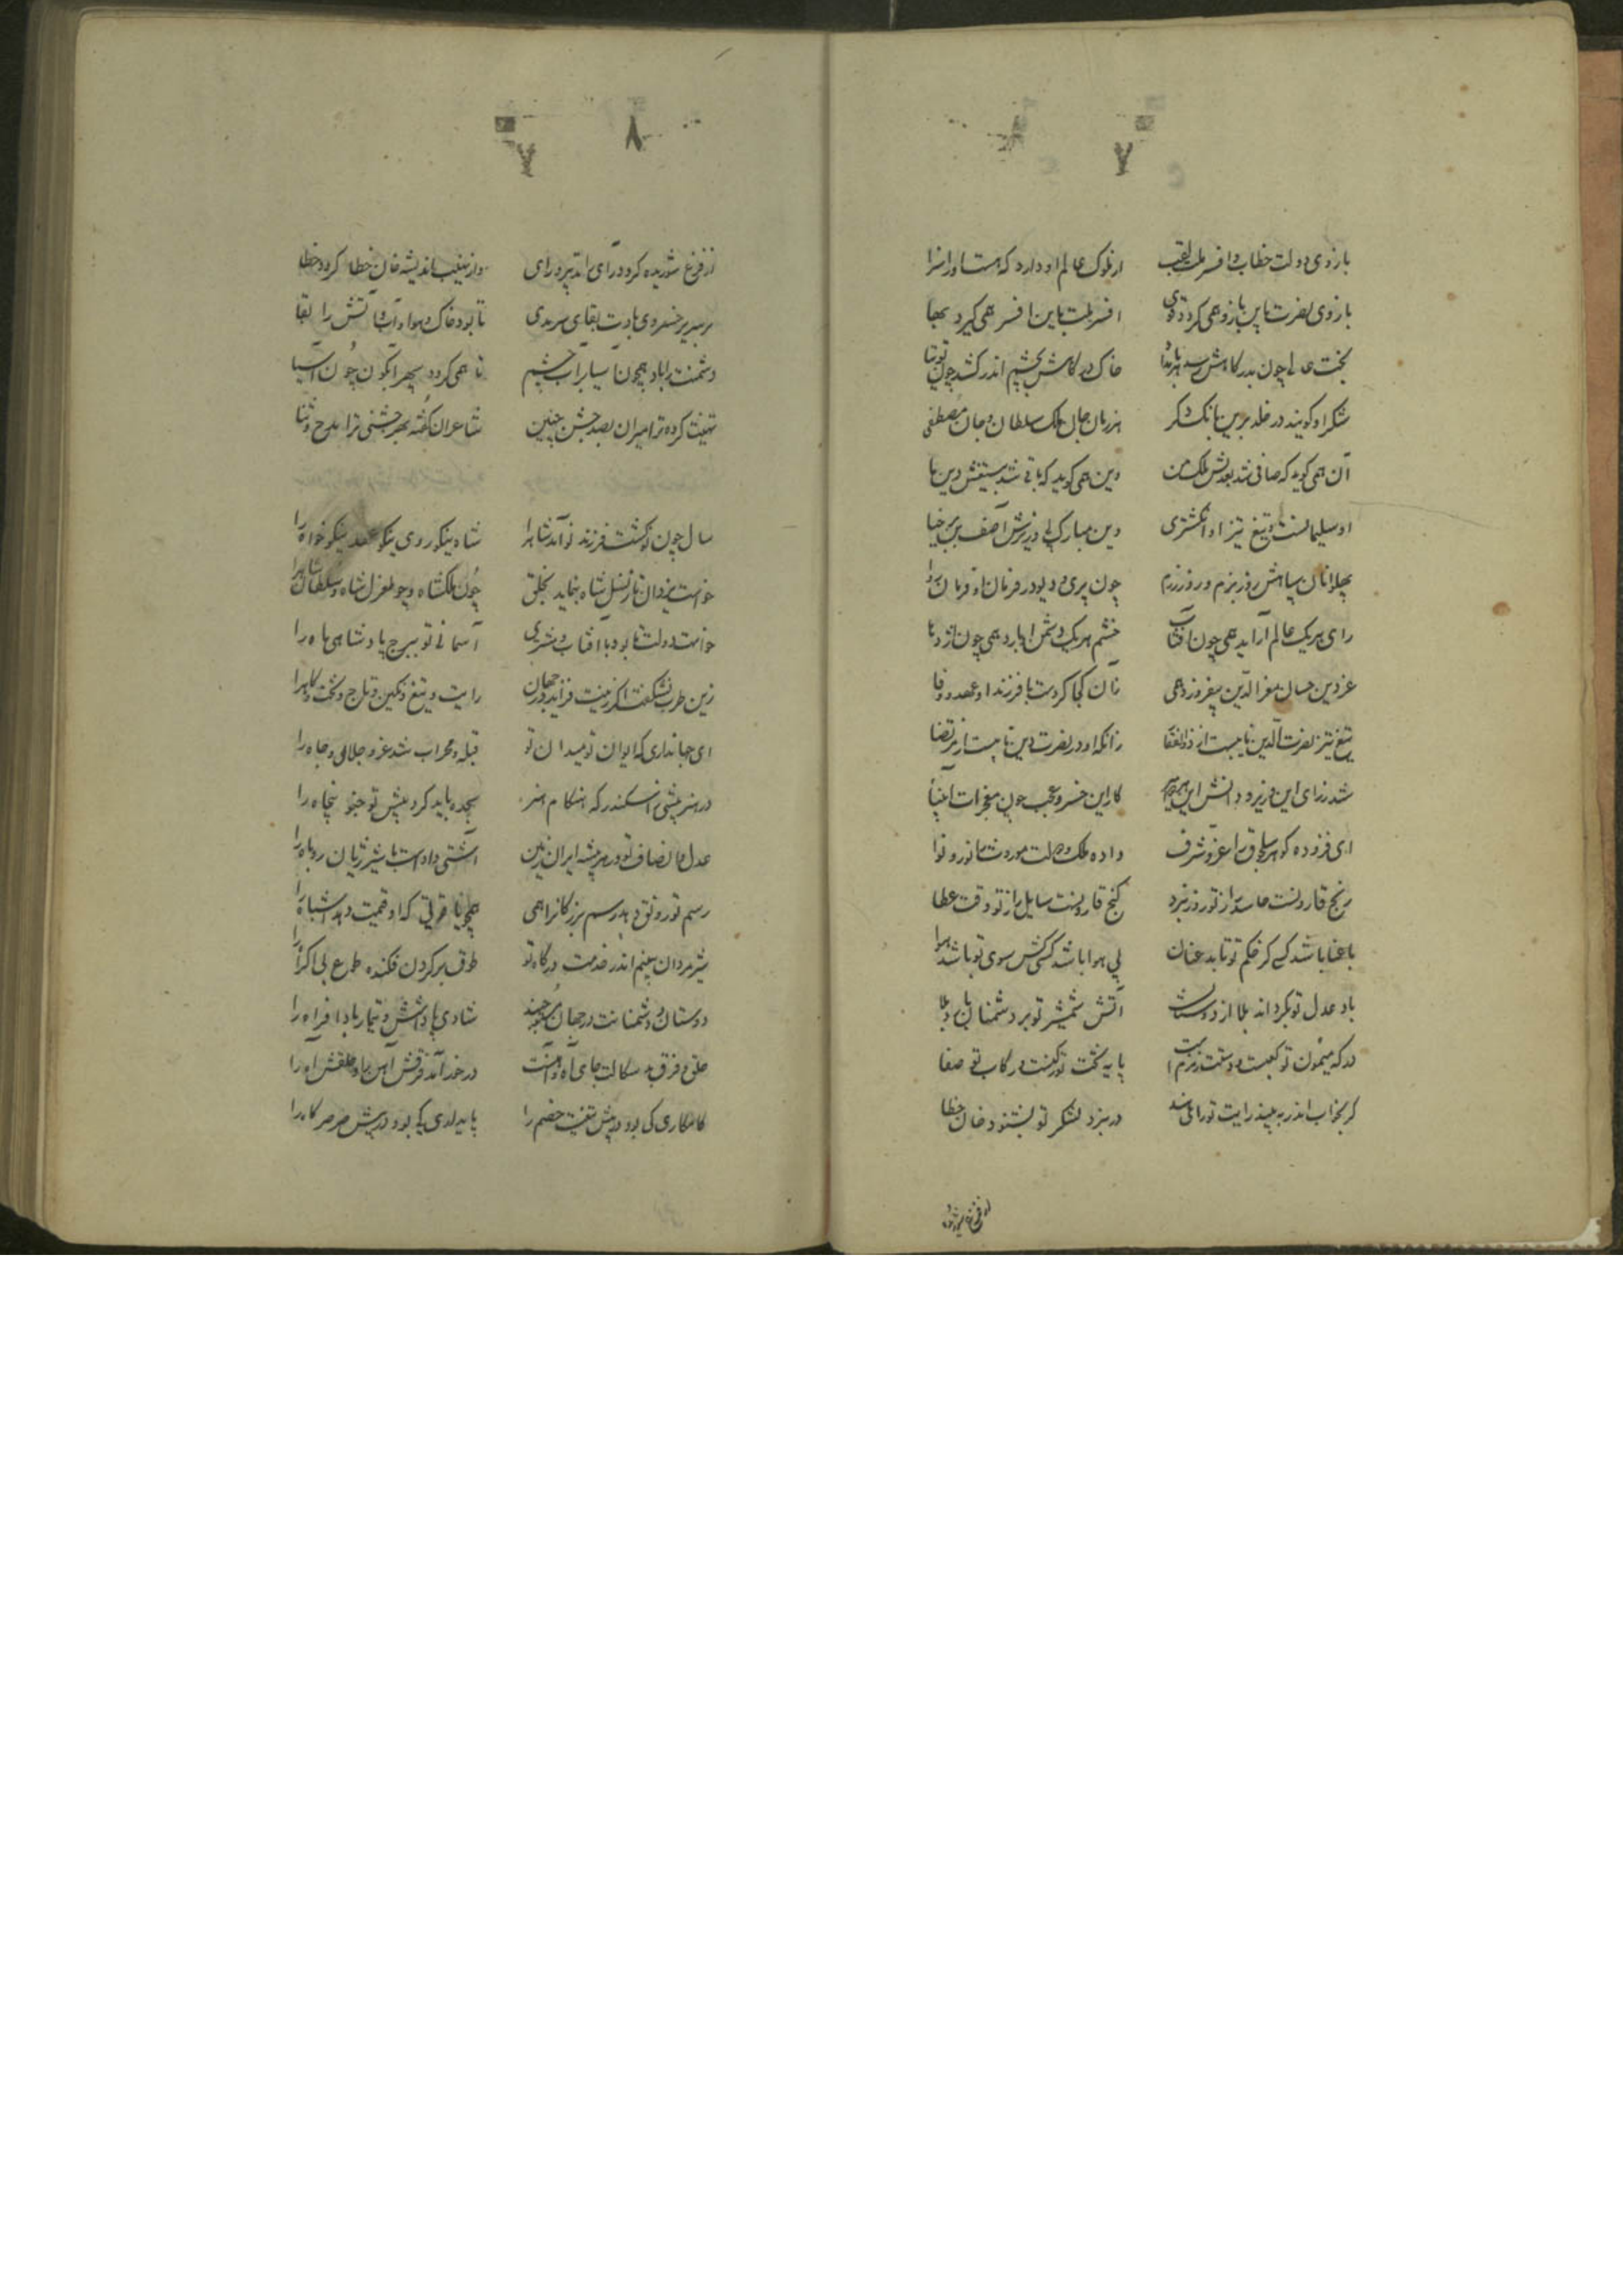 ۷
بازوی دولت خطاب و افسر ملت لقب از ملوک عالم او دارد که هست او را سزا
بازوی نصرت باین بازو همی گردد قوی افسر ملت باین افسر همی گیرد بها
بخت عالی چون بدرگاهش رسد هر بامداد خاک درگاهش بچشم اندر کشد چون توتیا
شکر او گویند در خلد برین بانگ شکر هر زمان جان ملک سلطان و جان مصطفی
آن همی گوید که صافی شد بعدلش ملک من وین همی گوید که باقی شد بتیغش دین ما
او سلیمانست و تیغ تیز او انگشتری وین مبارک پی وزیرش آصف بن برخیا
پهلوانان سپاهش روز بزم و روز رزم چون پری و دیو در فرمان او فرمان روا
رای هر یک عالم آراید همی چون آفتاب خشم هر یک دشمن اوبارد همی چون اژدها
عز دین جان معز الدین بیفروزد همی زان کجا کردست با فرزند او عهد و وفا
تیغ تیز نصرت الدین نایبست از ذوالفقار زانکه او در نصرت دین نایبست از مرتضا
شد ز رای این وزیر و دانش این کار این خسرو عجب چون معجزات انبیا
ای فزوده گوهر سلجوق را عز و شرف داده ملک و ملت موروث را نور و نوا
رنج قارونست حاسد را ز تو روز نبرد گنج قارونست سایل را ز تو وقت عطا
با عنا باشد کسی کز حکم تو تابد عنان بی هوا باشد کسی کش سوی تو باشد هوا
باد عدل تو بگرداند بلا از دوستان آتش شمشیر تو بر دشمنان بارد بلا
درگه میمون تو کعبست و دستت زمزم است پایه تخت تو رکنست و رکاب تو صفا
گر بخواب اندر ببیند رایت تو رای هند در نبرد لشکر تو بشنود خان خطا
۸
۷
از فزع شوریده گردد رای اندر رای وز نهیب اندیشه خان خطا گردد خطا
بر سریر خسروی بادت بقای سرمدی تا بود خاک و هوا و آب و آتش را بقا
دشمنت را باد همچون آسیا پر آب چشم تا همی گردد سپهر آبگون چون آسیا
تهنیت کرده ترا میران بصد جشن چنین شاعران گفته بهر جشنی ترا مدح و ثنا
سال چون نو گشت فرزند نو آمد شاه را شاه نیکو روی نیکو عهد نیکو خواه را
خواست یزدان تا ز نسل شاه بنماید بخلق چون ملکشاه و چو طغرل شاه و سلطان شاه را
خواست دولت تا بود با آفتاب و مشتری آسمانی نو ببرج پادشاهی ماه را
زین طرب نشگفت اگر زینت فزاید در جهان رایت و تیغ و نگین و تاج و تخت و گاه را
ای جهانداری که ایوان تو و میدان تو قبله و محراب شد عز و جلال و جاه را
در هنر پیشی ز اسکندر که هنگام هنر سجده باید کرد پیش تو چنو پنجاه را
عدل و انصاف تو در هر بیشه ایران زمین آشتی دادست با شیر ژیان روباه را
رسم تو رونق دهد رسم بزرگان را همی همچو یاقوتی که او قیمت دهد اشباه را
شیر مردان بینم اندر خدمت درگاه تو طوق بر گردن فکنده طوع بی اکراه را
دوستان و دشمنانت در جهان شادی پاداشش و تیمار باد افراه را
حلق و فرق بدسگالت جای آه و آهنست در خور آمد فرقش آهن را و حلقش آه را
کامکاری کی بود در پیش تیغت خصم را پایداری کی بود در پیش صرصر کاه را